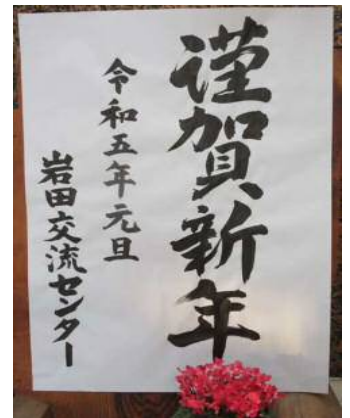 謹賀新年
令和五年元旦
岩田交流センター